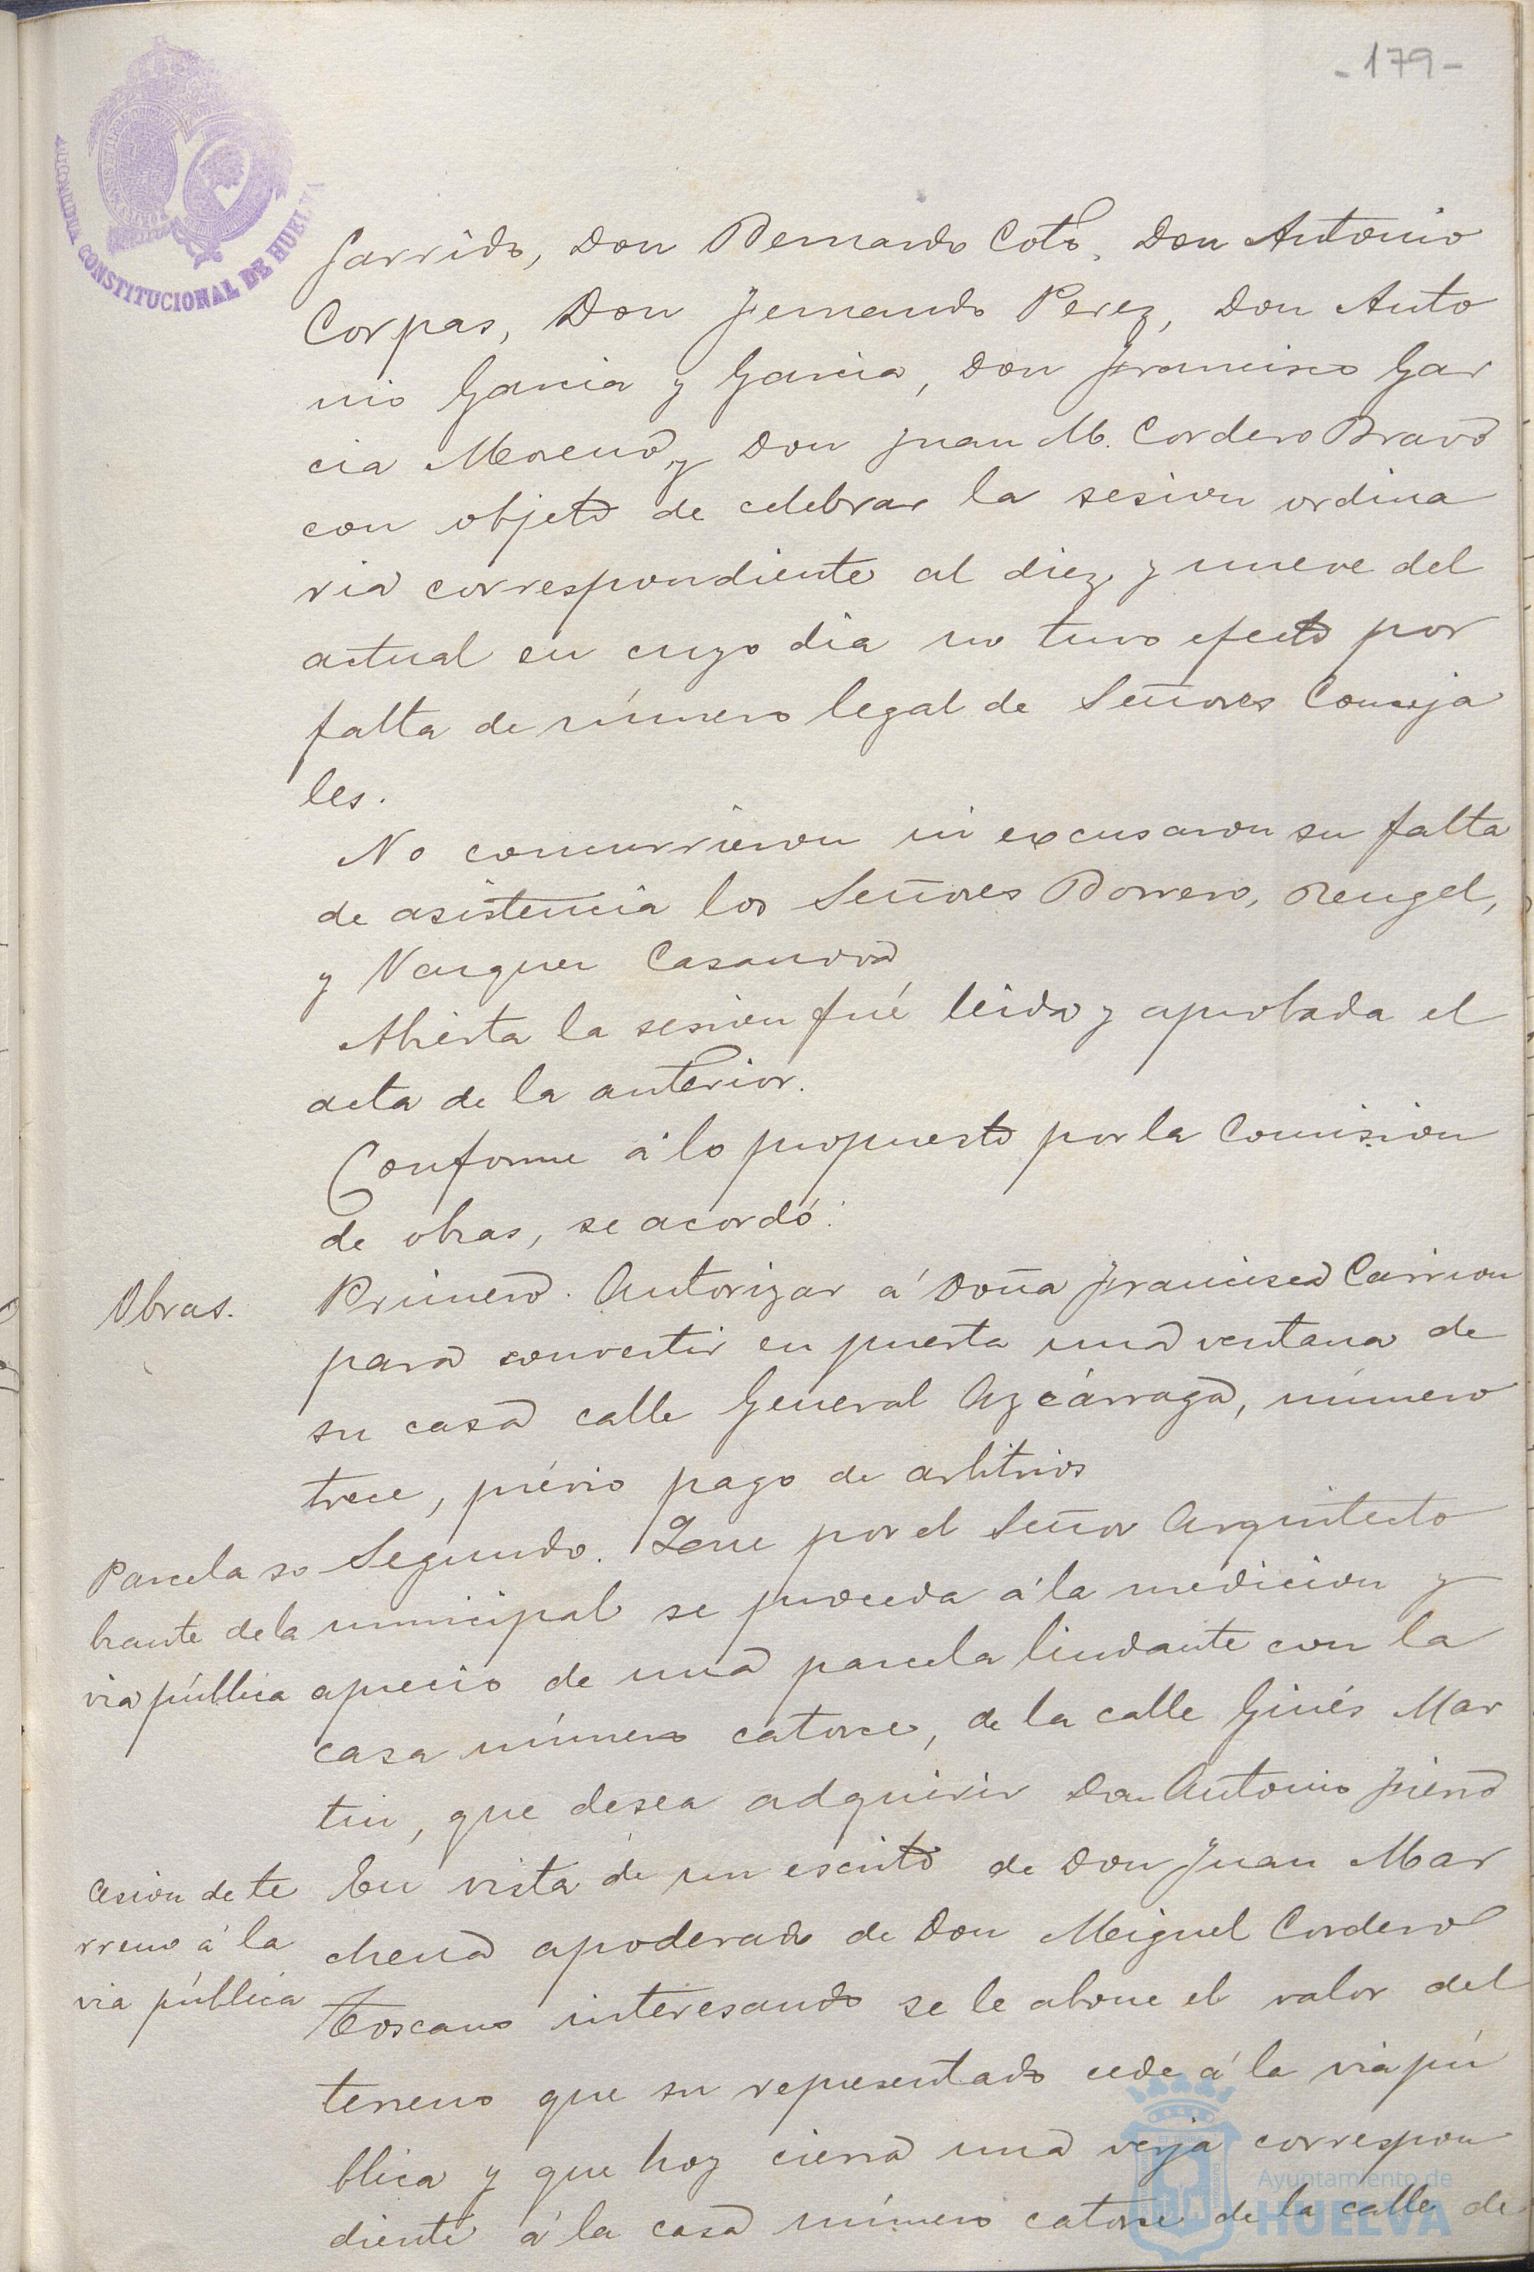 -179-
ALCALDIA CONSTITUCIONAL DE HUELVA
Garrido, Don Bernardo Coto, Don Antonio
Corpas, Don Fernando Perez, Don Anto
nio Garcia y Garcia, Don Francisco Gar
cia Moreno y Don Juan M. Cordero Bravo
con objeto de celebrar la sesion ordina
ria correspondiente al diez y nueve del
actual en cuyo dia no tuvo efecto por
falta de número legal de Señores Conceja
les.
No concurrieron ni excusaron su falta
de asistencia los Señores Borrero, Rengel,
y Vazquez Casanova
Abierta la sesion fué leida y aprobada el
acta de la anterior.
Conforme á lo propuesto por la Comision
de obras, se acordó:
Obras.
Primero. Autorizar á Doña Francisca Carrion
para convertir en puerta una ventana de
su casa calle General Azcárraga, número
trece, prévio pago de arbitrios
Parcela so
brante de la
via pública
Segundo. Que por el Señor Arquitecto
municipal se proceda á la medicion y
aprecio de una parcela lindante con la
casa número catorce, de la calle Ginés Mar
tin, que desea adquirir Don Antonio Fierro
Cesion de te
rreno á la
via pública
En vista de un escrito de Don Juan Mar
chena apoderado de Don Miguel Cordero
Toscano interesando se le abone el valor del
terreno que su representado cede á la via pú
blica y que hoy cierra una verja correspon
diente á la casa número catorce de la calle de
Ayuntamiento de
HUELVA